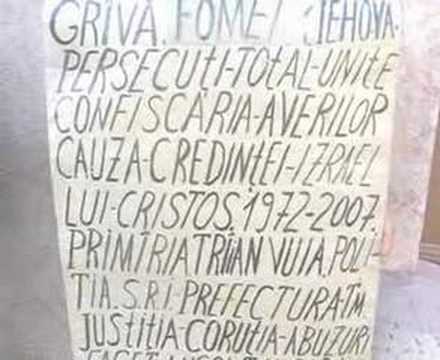 GRIVA. FOMEI. JEHOVA-
PERSECUȚI-TOTAL-UNITE
CONFISCARIA-AVERILOR
CAUZA-CREDINȚEI-IZRAEL
LUI-CRISTOS, 1972-2007.
PRIMĪRIA TRĪIAN VUIA. POLI-
TIA. S.R.I-PREFECTURA-TM.
JUSTIȚIA-CORUȚIA-ABUZURI